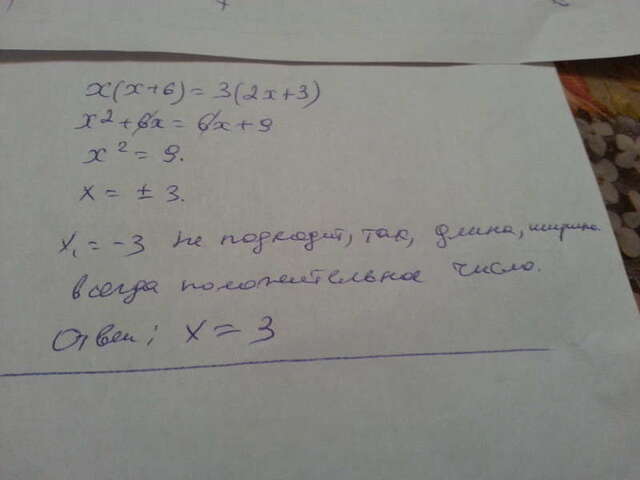 x(x+6)=3(2x+3)
x²+6x=6x+9
x²=9.
x=±3.
x₁=-3 не подходит, так, длина, ширина.
всегда положительное число.
Ответ: x=3